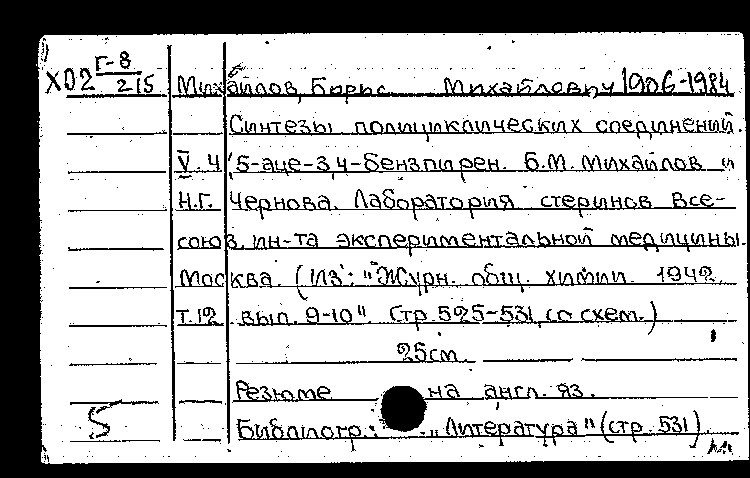 Х02 Г-8/215 Михайлов, Борис Михайлович 1906-1984
Синтезы полициклических соединений.
V. 4',5-аце-3,4-бензпирен. Б.М. Михайлов и
Н.Г. Чернова. Лаборатория стеринов Все-
союз. ин-та экспериментальной медицины.
Москва. (Из: "Журн. общ. химии. 1942
т.12 вып. 9-10". Стр. 525-531, со схем.)
25см.
Резюме на англ. яз.
5 Библиогр.: "Литература" (стр. 531).